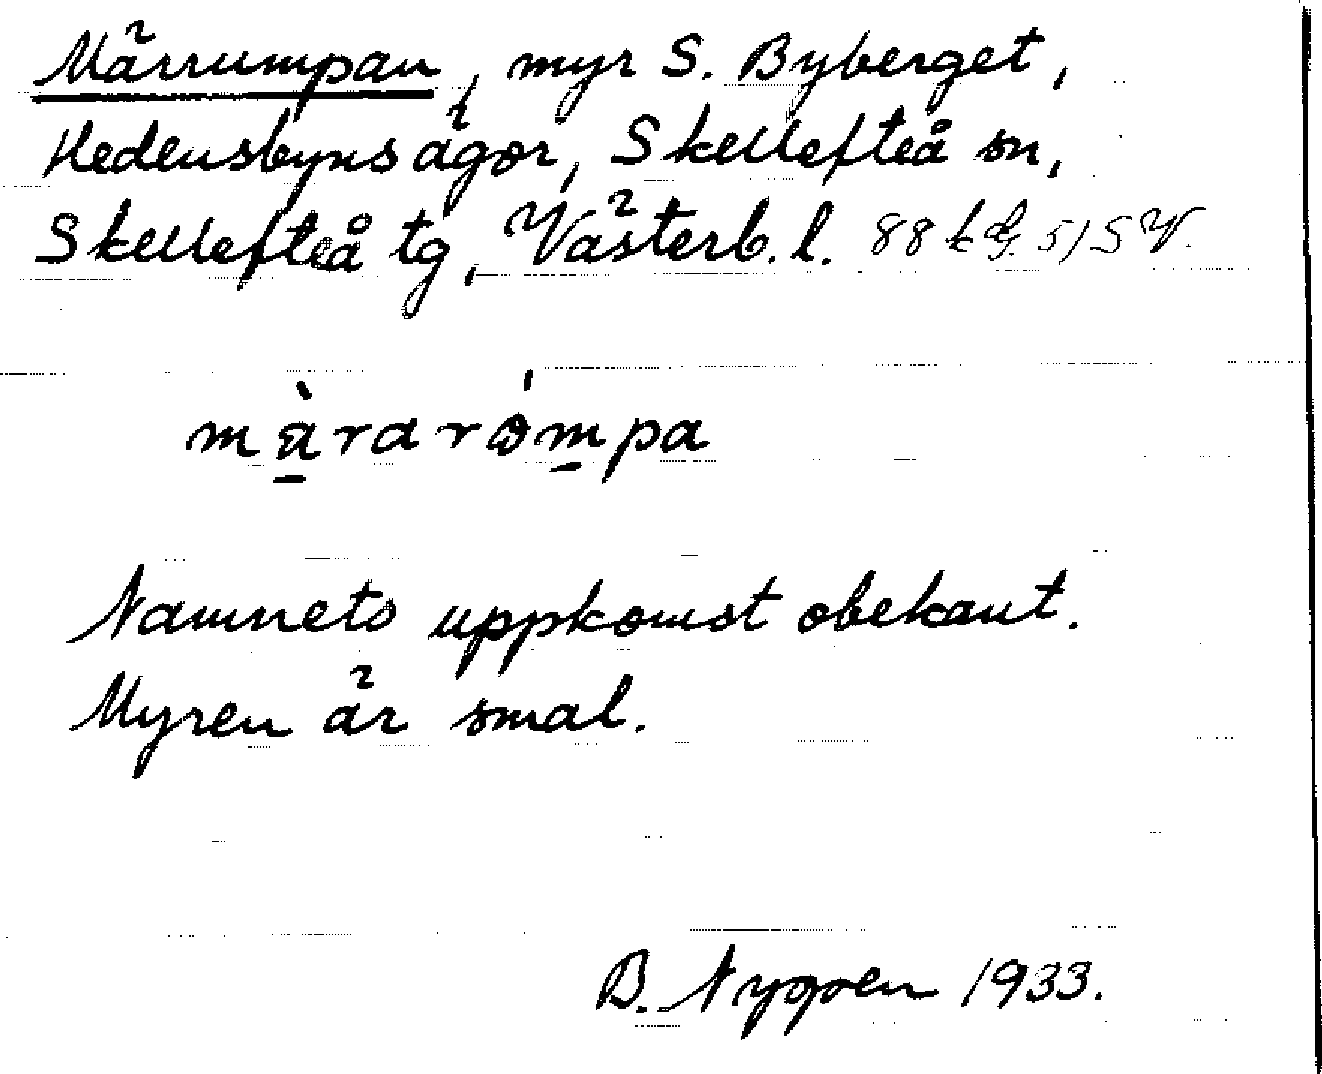 Märrumpan, myr S. Byberget,
Hedensbyns ägor, Skellefteå sn,
Skellefteå tg, Västerb. l. 88 k 51 SV.
màrarómpa
Namnets uppkomst obekant.
Myren är smal.
B. Nygren 1933.